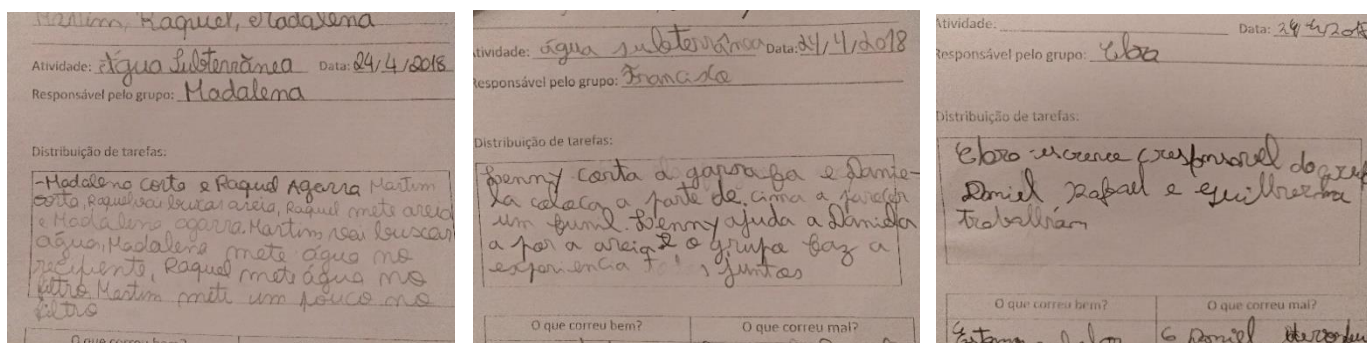 Martim, Raquel, Madalena
Atividade: Água Subterrânea Data: 24/4/2018
Responsável pelo grupo: Madalena
Distribuição de tarefas:
-Madalena corta e Raquel Agarra Martim
corta, Raquel vai buscar areia, Raquel mete areia
e Madalena agarra. Martim vai buscar
água, Madalena mete água no
recipiente, Raquel mete água no
filtro Martim mete um pouco no
filtro
O que correu bem?
tividade: água subterrânea Data: 24/4/2018
Responsável pelo grupo: Francisca
Distribuição de tarefas:
Lenny corta a garrafa e Danie-
la coloca a parte de cima a parecer
um funil. Lenny ajuda a Daniela
a por a areia e o grupo faz a
experiencia juntos
O que correu bem? O que correu mal?
Atividade: Data: 24/4/2018
Responsável pelo grupo:
Distribuição de tarefas:
escrence (responsavel do grup
Daniel Rafael e guilherme
trabalham
O que correu bem? O que correu mal?
Daniel